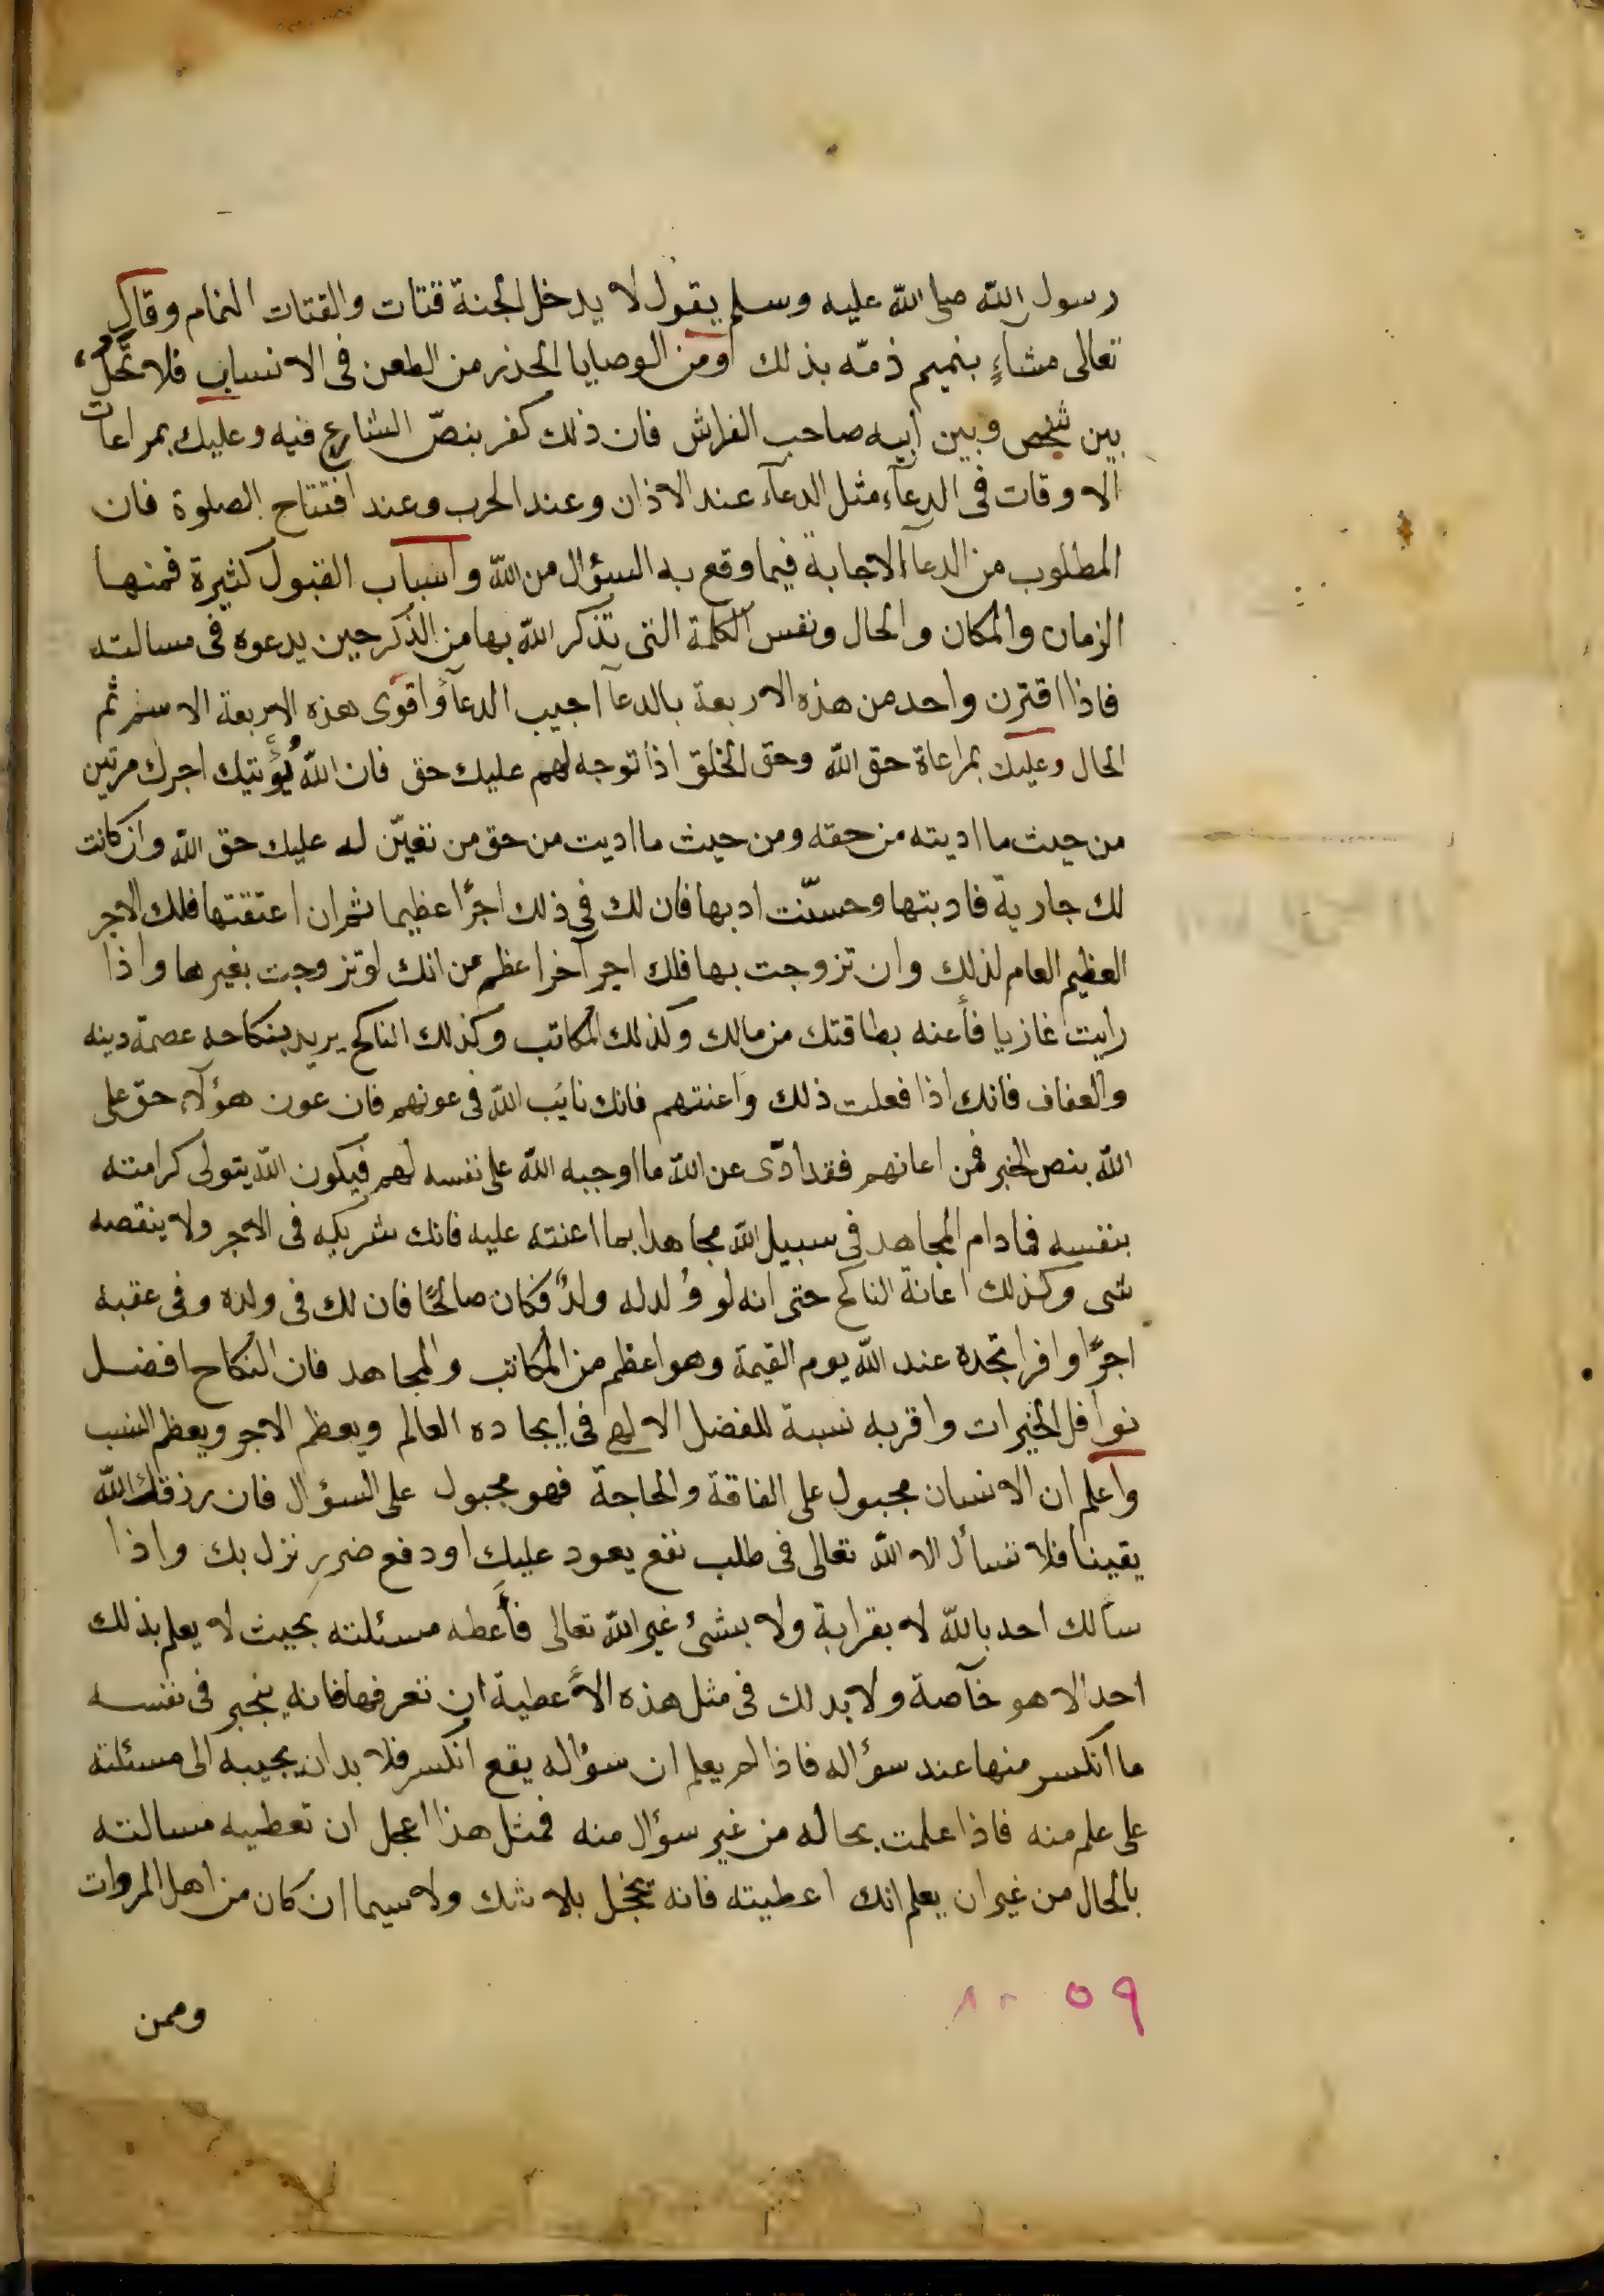 رسول الله صلى الله عليه وسلم يقول لا يدخل الجنة قتات والقتات النمام وقال
تعالى مشاءٍ بنميم ذمّه بذلك ومن الوصايا الحذر من الطعن فى الانساب فلا تحُلْ
بين شخص وبين ابيه صاحب الفراش فان ذلك كفر بنصّ الشارع فيه وعليك بمراعات
الاوقات فى الدعآء مثل الدعآء عند الاذان وعند الحرب وعند افتتاح الصلوة فان
المطلوب من الدعآ الاجابة فيما وقع به السؤال من الله واسباب القبول كثيرة فمنها
الزمان والمكان والحال ونفس الكلمة التى تذكر الله بها من الذكر حين يدعوه فى مسالته
فاذا اقترن واحد من هذه الاربعة بالدعآ اجيب الدعآ واقوى هذه الاربعة الاسم ثم
الحال وعليك بمراعاة حق الله وحق الخلق اذا توجه لهم عليك حق فان الله يُؤتيك اجرك مرتين
من حيث ما اديته من حقه ومن حيث ما اديت من حق من تعيّن له عليك حق الله وان كانت
لك جارية فادبتها وحسّنت ادبها فان لك فى ذلك اجرًا عظيما ثم ان اعتقتها فلك الاجر
العظيم العام لذلك وان تزوجت بها فلك اجر آخر اعظم من انك لو تزوجت بغيرها واذا
رايت غازيا فأعنه بطاقتك من مالك وكذلك المكاتب وكذلك الناكح يريد بنكاحه عصمة دينه
والعفاف فانك اذا فعلت ذلك واعنتهم فانك نايَب الله فى عونهم فان عون هؤلآء حق على
الله بنص الخبر فمن اعانهم فقد ادّى عن الله ما اوجبه الله على نفسه لهم فيكون الله يتولى كرامته
بنفسه فمادام المجاهد فى سبيل الله مجاهدا بما اعنته عليه فانك شريكه فى الاجر ولا ينقصه
شى وكذلك اعانة الناكح حتى انه لو وُلد له ولدٌ فكان صالحًا فان لك فى ولده وفى عقبه
اجرًا وافرا تجده عند الله يوم القيمة وهو اعظم من المكاتب والمجاهد فان النكاح افضل
نوافل الخيرات واقربه نسبة للفضل الالهى فى ايجاده العالم ويعظم الاجر ويعظم النسب
واعلم ان الانسان مجبول على الفاقة والحاجة فهو مجبول على السؤال فان رزقك الله
يقينا فلا تسأل الا الله تعالى فى طلب نفع يعود عليك او دفع ضررٍ نزل بك واذا
سألك احد بالله لا بقرابة ولا بشئ غير الله تعالى فأَعطه مسئلته بحيث لا يعلم بذلك
احد الا هو خآصة ولا بد لك فى مثل هذه الأعطية ان تعرفها فانه ينجبر فى نفسه
ما انكسر منها عند سؤاله فاذا لم يعلم ان سؤاله يقع انكسر فلا بد ان يجيبه الى مسئلته
على علم منه فاذا علمت بحاله من غير سؤال منه فمثل هذا اعمل ان تعطيه مسالته
بالحال من غير ان يعلم انك اعطيته فانه يخجل بلا شك ولا سيما ان كان من اهل المروات
٥٩
وممن